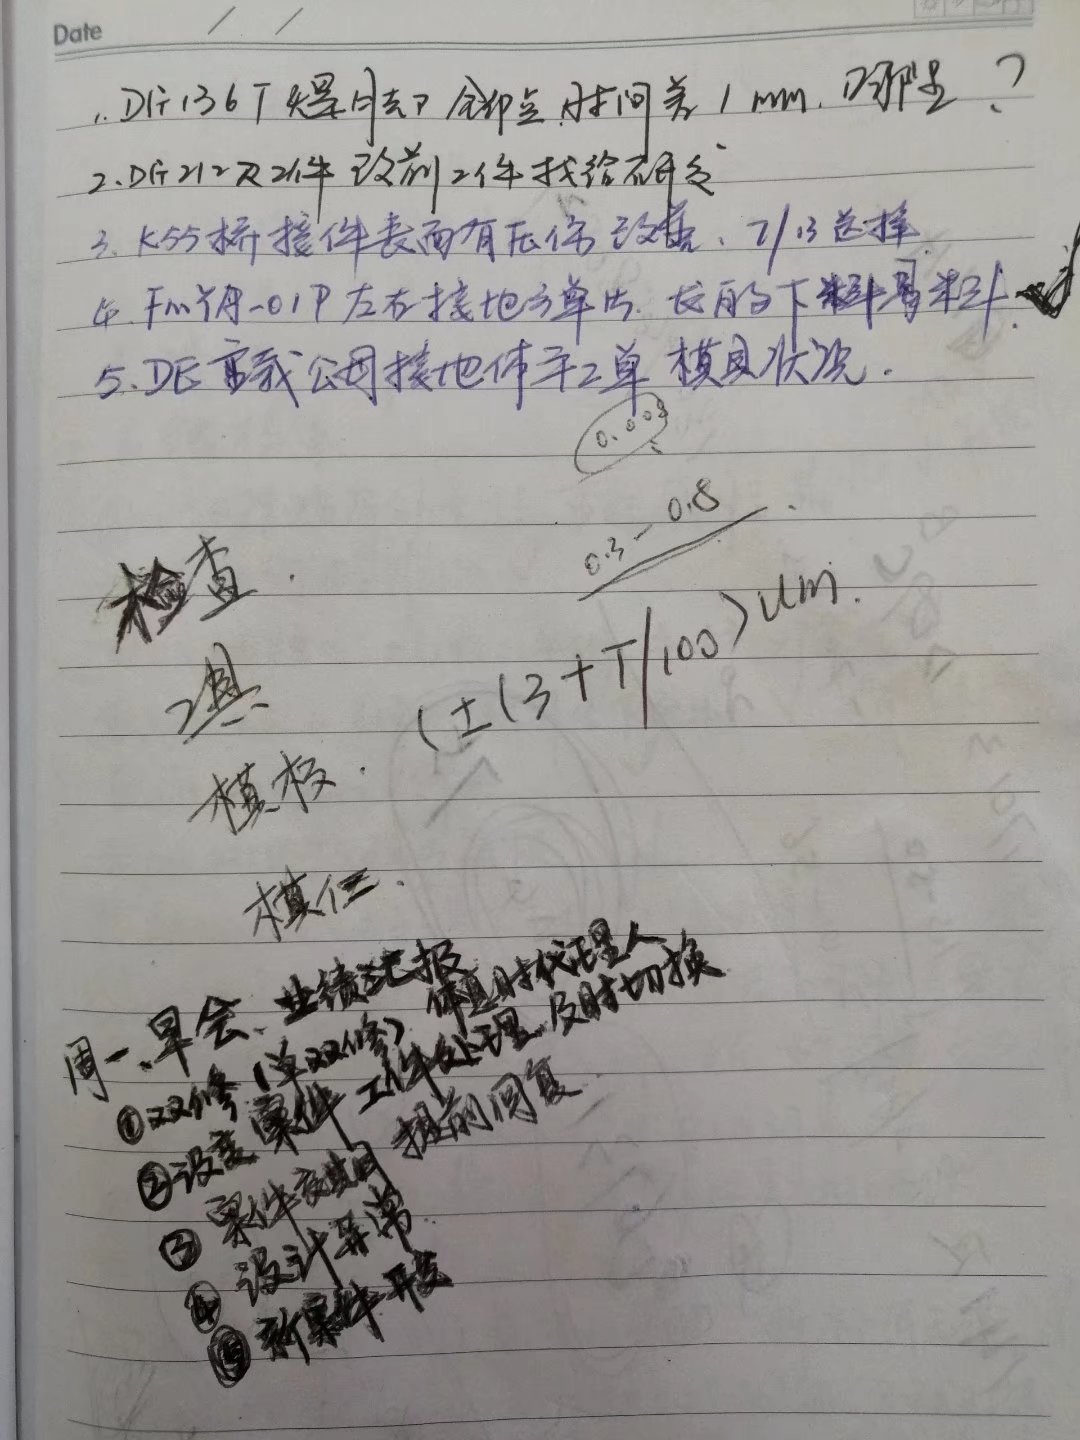 Date / /
1. DG136T 铆点时间差1mm. ?
2. DG212 改前2件找给研发
3. K55桥接件表面有压伤改善、7/13送样
4. FmYA-01P左右接地 单出. 长的下料 料.
5. DE 公母接地体手工单模具状况.
0.008
0.3-0.8
(±(3+T/100)um.
检查.
模板.
模仁.
周一.早会、业绩汇报
①双修(单双修)休息时代理人
②设变案件工件处理及时切换
③案件 提前回复
④设计异常
⑤新案件开发